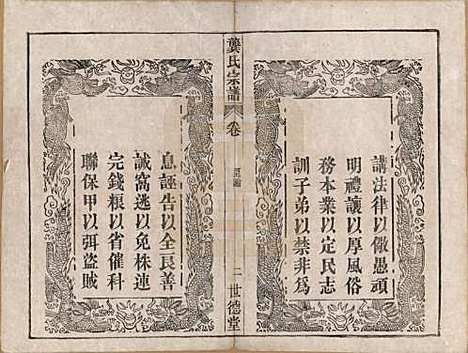 講法律以儆愚頑
明禮讓以厚風俗
務本業以定民志
訓子弟以禁非為
龔氏宗譜
卷
聖諭
二
世德堂
息誣告以全良善
誡窩逃以免株連
完錢糧以省催科
聯保甲以弭盜賊